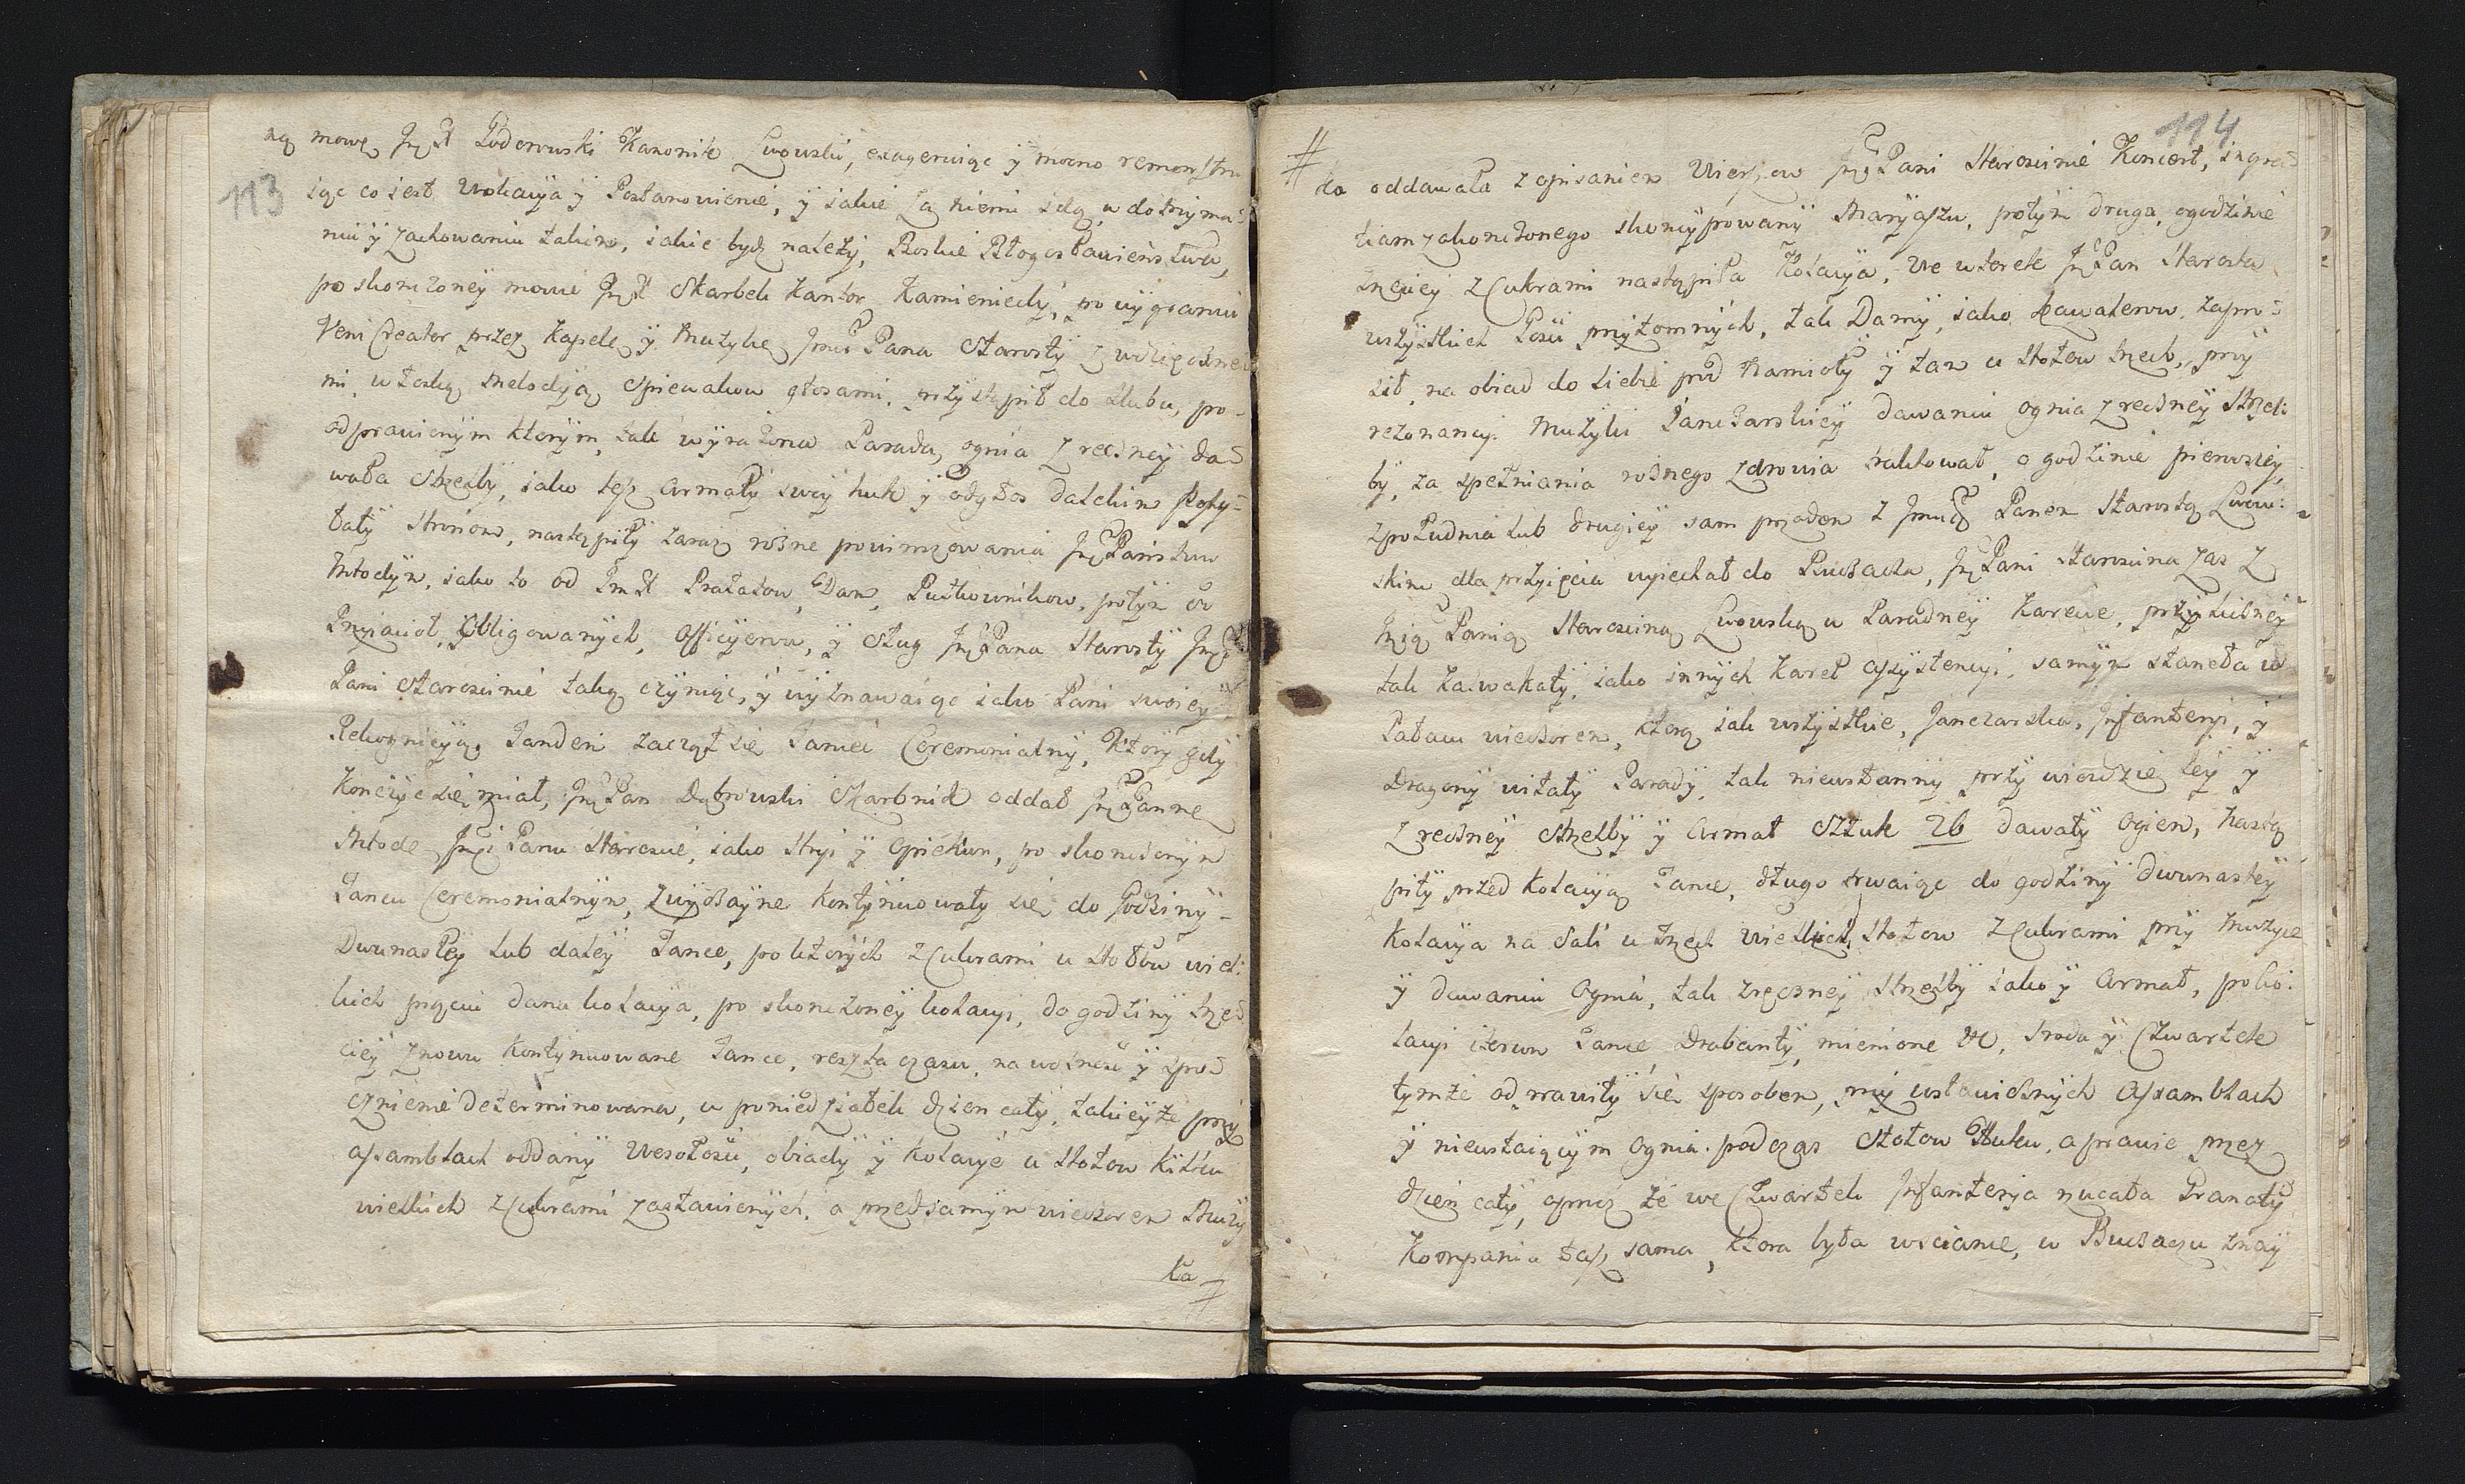 113
ną mowę Jmć X Podorowski Kanonik Lwowski, exageruiąc y mocno remonstru
iąc co iest Wokacya y Postanowienie, y iakie za niemi idą w dotrzyma=
niu y zachowaniu takim, iakie bydź należy, Boskie Błogosławieństwa,
po skonczoney mowie Jmć X Skarbek Kantor Kamieniecky, po wygraniu
Veni Creator przez kapelę y Muzykę Jmci Pana Starosty z wdzięcznem
mi, włoską melodyą spiewakow głosami, przystąpił do Slubu, po-
odprawionym ktorym, tak wyrażona Parada, ognia z ręczney da=
wała strzelby, iako tesz Armaty swoy huk y odgłos dalekim posy=
łały stronom, nastąpiły zaraz rożne powinszowania Jmć Państwu
Młodym, iako to od Jmć X Prałatow, Dam, Pułkownikow, potym od
Przyiacioł, Obligowanych, Officyerow, y sług Jmć Pana Starosty Jmć
Pani Staroscinie taką czyniąc, y wyznawaiąc iako Pani swoiey
Rekognicyą. Tandem zaczął się Taniec Ceremonialny, Ktory gdy
konczyc się miał, Jmć Pan Dąbrowski Skarbnik oddał Jmć Pannę
Młodę Jmci Panu Staroscie, iako Stryi y Opiekun, po skonczonym
Tancu Ceremonialnym, zwyczayne kontynuowały się do Godziny-
Dwunastey lub daley Tance, po ktorych z Cukrami u Stołow wiel:
kich pięciu dana kolacya, po skonczoney kolacyi, do godziny trze=
ciey znowu kontynuowane Tance, reszta czasu, na wczesie y spo=
cznienie determinowana, w poniedziałek dzien cały, takieyże przy
assamblach oddany Wesołosci, obiady y kolacye u stołow kilku
wielkich z Cukrami zastawionych, a przed samym wieczorem Muzy
ka #
114
# ka oddawała z opisaniem Wierszow Jmć Pani Staroscinie Koncert, in gra=
tiam zakonczonego skoncypowany Maryaszu, potym druga, o godzinie
trzeciey z Cukrami nastąpiła Kolacya, We wtorek Jmć Pan Starosta
wszystkich Gosci przytomnych, tak Damy, iako kawalerow, zapro=
sił, na obiad do siebie pod Namioty y tam u stołow trzech, przy
rezonancyi Muzyki Janczarskiey dawaniu ognia z ręczney strzel:
by, za spełniania rożnego zdrowia traktował, o godzinie pierwszey,
z południa lub drugiey sam przodem z Jmcią Panem Starostą Lwow:
skim dla przyięcia wyiechał do Buczacza, Jmć Pani Staroscina zas z
Jmcią Panią Staroscinę Lwowską w Paradney Karecie, przy liczney
tak kawalkaty, iako innych karet assystencyi, samym staneła w
Pałacu wieczorem, ktorą iak wszystkie, Janczarska, Infanteryi, y
Dragony witały Parady, tak nieustanny przy wiezdzie tey y
z ręczney strzelby y Armat sztuk 26 dawały ogien, nastą
piły przed kolacyą Tance, długo trwaiąc do godziny dwunastey
kolacya na Sali u trzech wielkich stołow z Cukrami przy Muzyce
y dawaniu Ognia, tak z ręczney strzelby iako y Armat, po ko:
lacyi iterum Tance Drabanty, mienione etc, Sroda y Czwartek
tymże odprawiły się sposobem, przy ustawicznych Assamblach
y nieustaiącym ogniu podczas stołow Huku, a prawie przez
dzień cały, oprocz że we Czwartek Infanterya rzucała Granaty
Kompania tasz sama, ktora była w Scianie, w Buczaczu znay